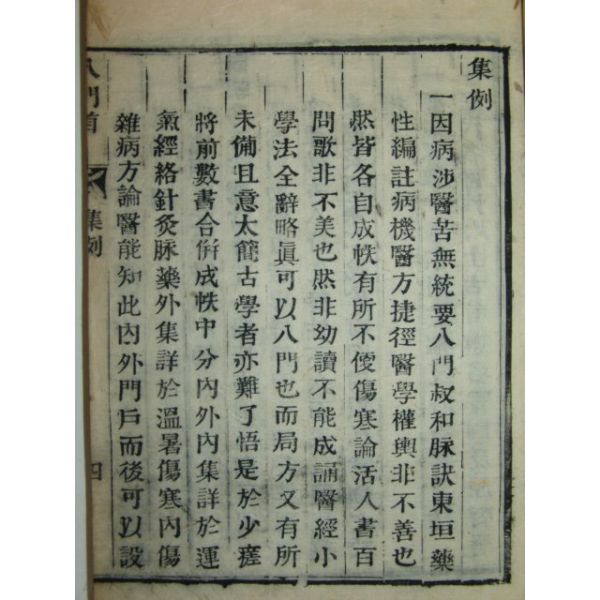 集例
一因病涉醫苦無統要八門叔和脉訣東垣藥
性編註病機醫方捷徑醫學權輿非不善也
然皆各自成帙有所不便傷寒論活人書百
問歌非不美也然非幼讀不能成誦醫經小
學法全辭略眞可以入門也而局方又有所
未備且意太簡古學者亦難了悟是於少瘥
將前數書合倂成帙中分內外內集詳於運
氣經絡針灸脉藥外集詳於溫暑傷寒內傷
雜病方論醫能知此內外門戶而後可以設
入門首 集例 四